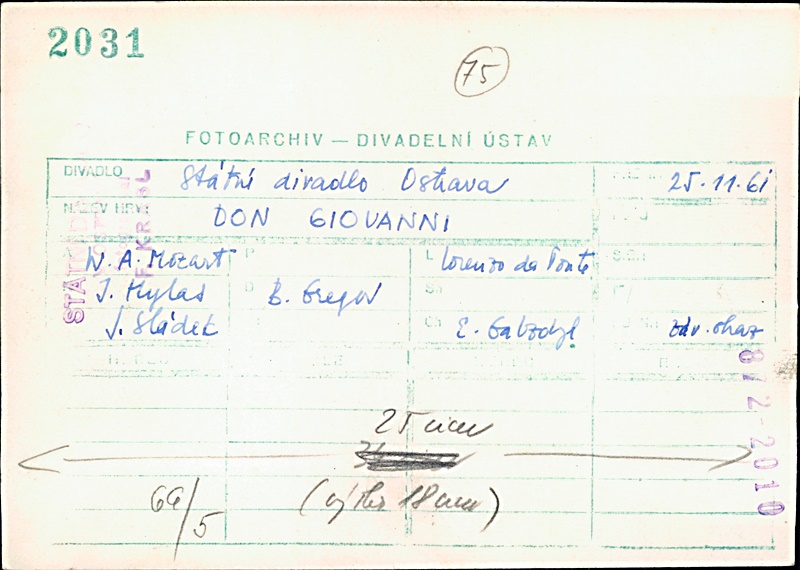 2031
75
FOTOARCHIV — DIVADELNÍ ÚSTAV
DIVADLO Státní divadlo Ostrava 25.11.61
NÁZEV HRY DON GIOVANNI
W. A. Mozart L Lorenzo da Ponte
J. Hylas D B. Gregor
J. Sládek Ch E. Gabzdyl záv. obraz
25 mm
(výška 18 mm)
69/5
872-2010